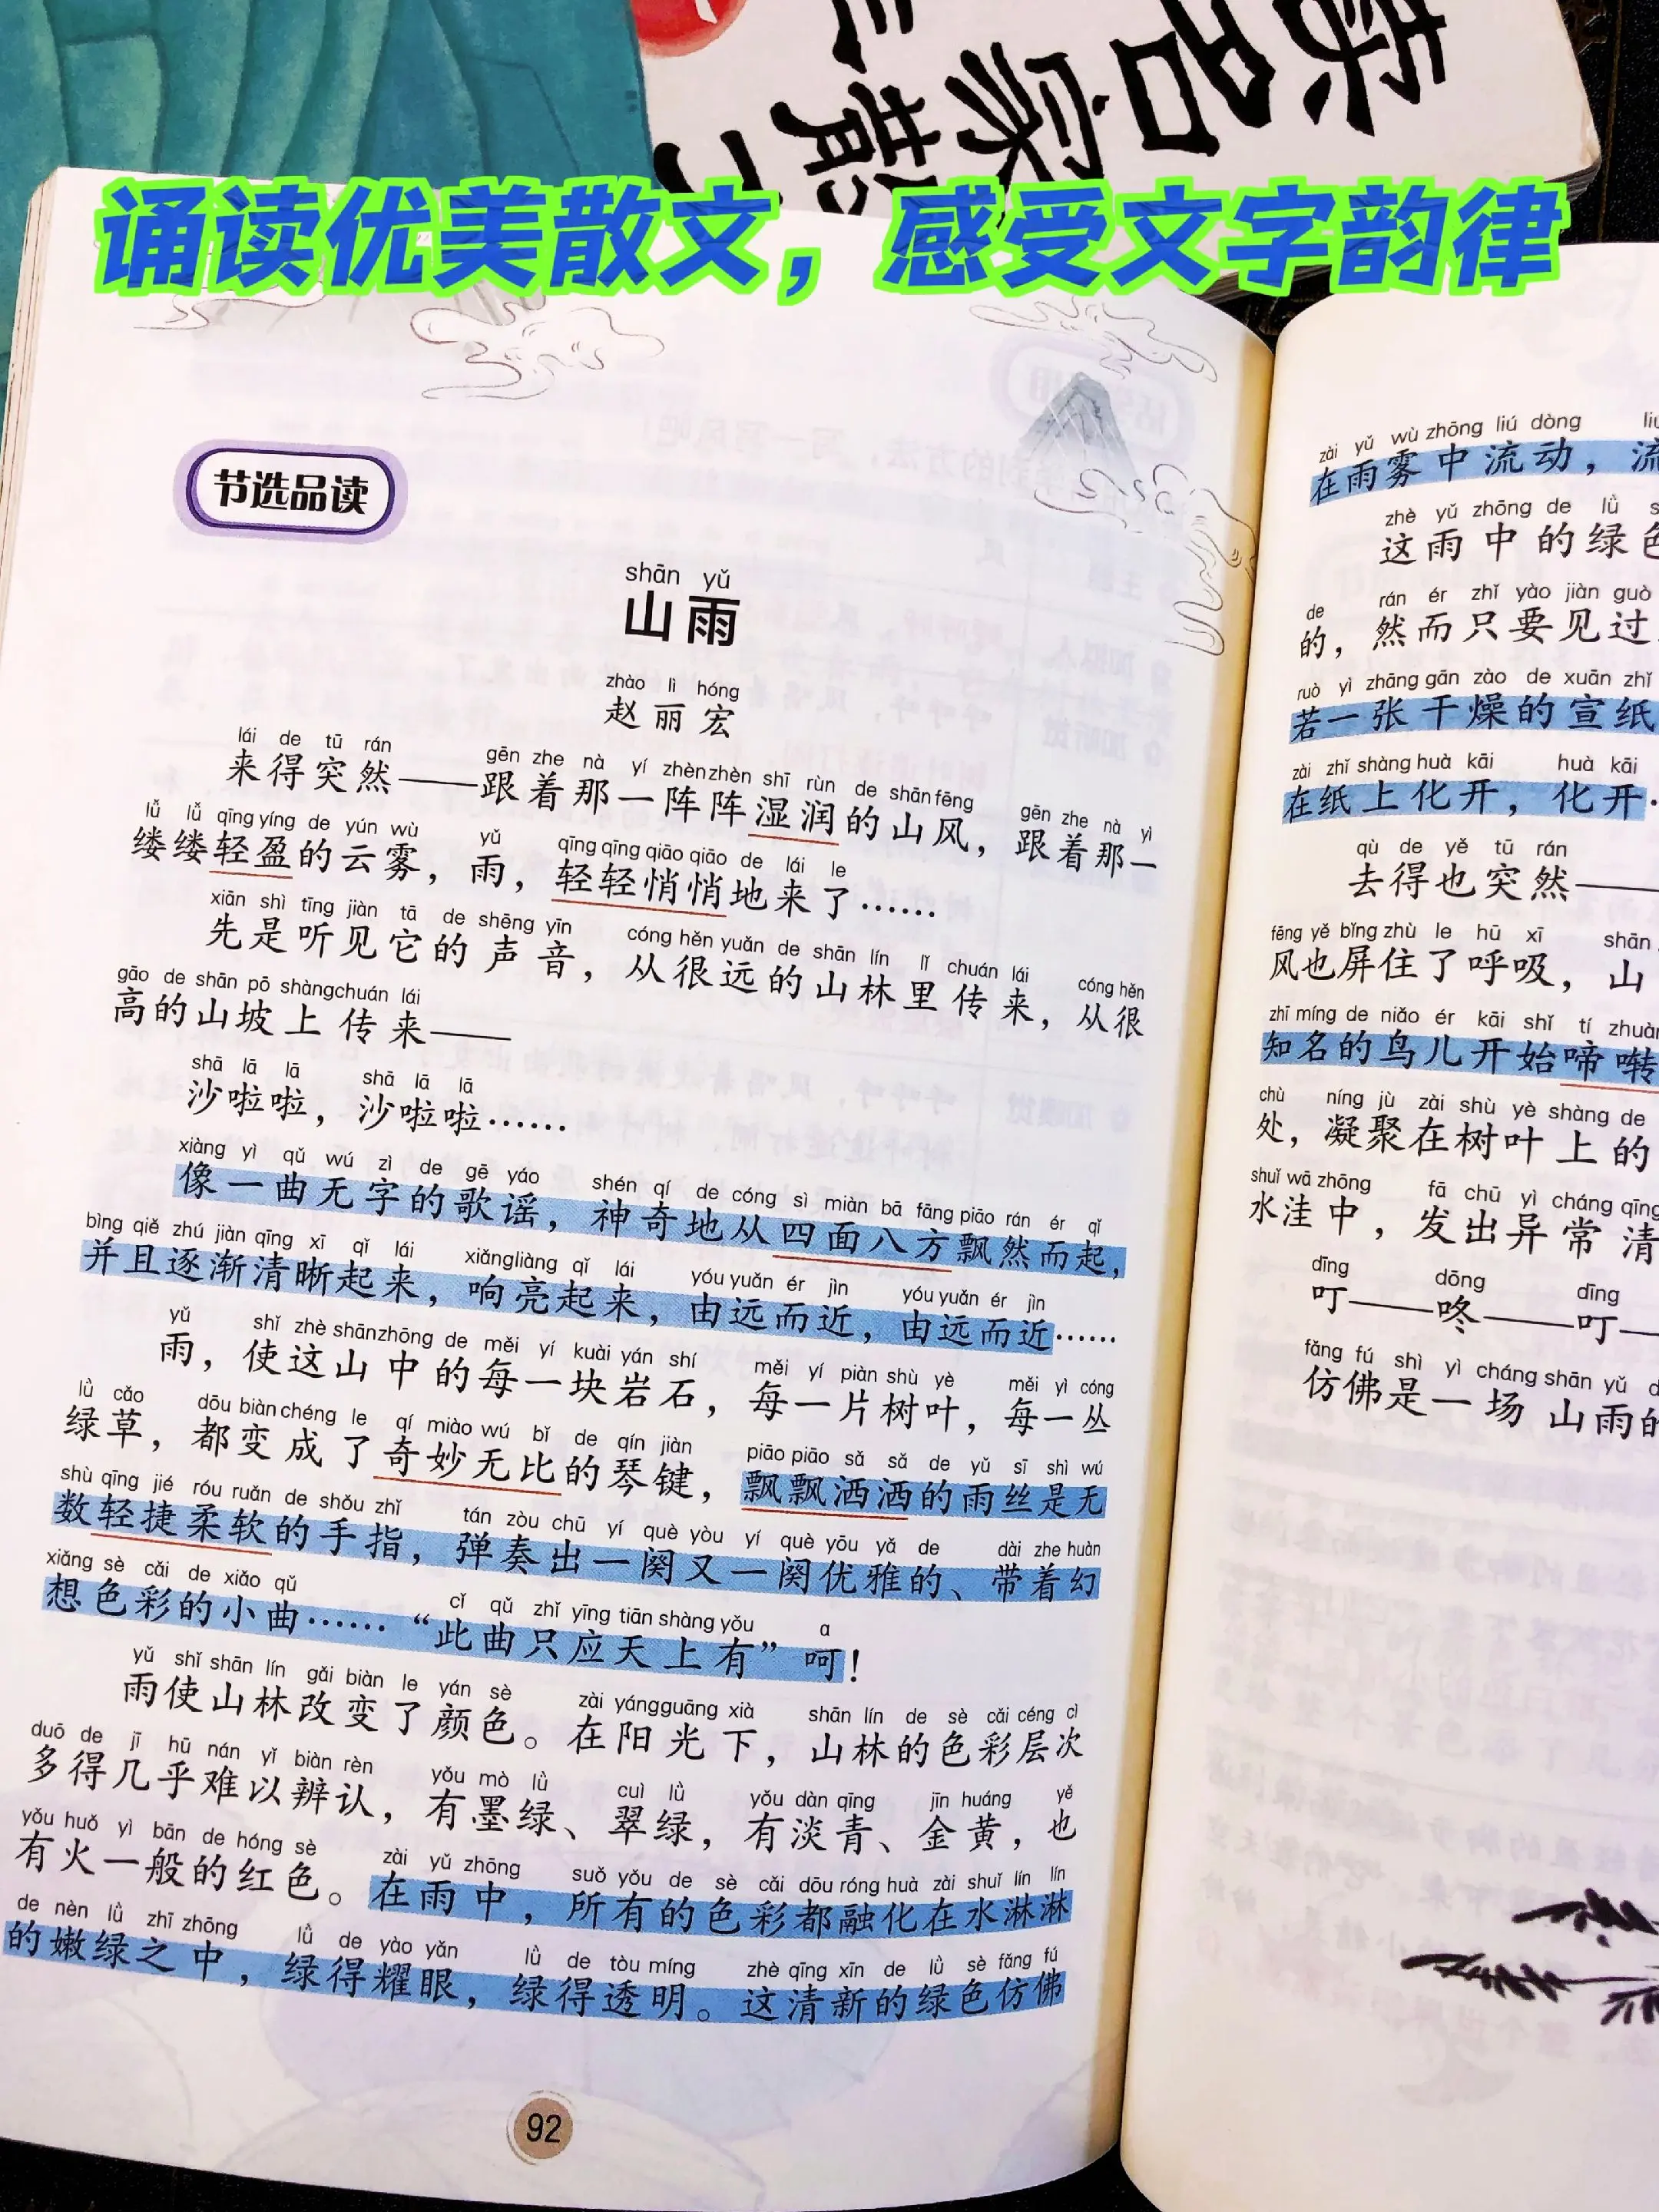 读名家散文
诵读优美散文，感受文字韵律
节选品读
shān yǔ
山雨
zhào lì hóng
赵丽宏
lái de tū rán gēn zhe nà yí zhèn zhèn shī rùn de shān fēng gēn zhe nà yì
来得突然——跟着那一阵阵湿润的山风，跟着那一
lǚ lǚ qīng yíng de yún wù yǔ qīng qīng qiāo qiāo de lái le
缕缕轻盈的云雾，雨，轻轻悄悄地来了……
xiān shì tīng jiàn tā de shēng yīn cóng hěn yuǎn de shān lín lǐ chuán lái cóng hěn
先是听见它的声音，从很远的山林里传来，从很
gāo de shān pō shàng chuán lái
高的山坡上传来——
shā lā lā shā lā lā
沙啦啦，沙啦啦……
xiàng yì qǔ wú zì de gē yáo shén qí de cóng sì miàn bā fāng piāo rán ér qǐ
像一曲无字的歌谣，神奇地从四面八方飘然而起，
bìng qiě zhú jiàn qīng xī qǐ lái xiǎng liàng qǐ lái yóu yuǎn ér jìn yóu yuǎn ér jìn
并且逐渐清晰起来，响亮起来，由远而近，由远而近……
yǔ shǐ zhè shān zhōng de měi yí kuài yán shí měi yí piàn shù yè měi yì cóng
雨，使这山中的每一块岩石，每一片树叶，每一丛
lǜ cǎo dōu biàn chéng le qí miào wú bǐ de qín jiàn piāo piāo sǎ sǎ de yǔ sī shì wú
绿草，都变成了奇妙无比的琴键，飘飘洒洒的雨丝是无
shù qīng jié róu ruǎn de shǒu zhǐ tán zòu chū yí què yòu yí què yōu yǎ de dài zhe huàn
数轻捷柔软的手指，弹奏出一阕又一阕优雅的、带着幻
xiǎng sè cǎi de xiǎo qǔ cǐ qǔ zhǐ yīng tiān shàng yǒu a
想色彩的小曲……“此曲只应天上有”呵！
yǔ shǐ shān lín gǎi biàn le yán sè zài yáng guāng xià shān lín de sè cǎi céng cì
雨使山林改变了颜色。在阳光下，山林的色彩层次
duō de jī hū nán yǐ biàn rèn yǒu mò lǜ cuì lǜ yǒu dàn qīng jīn huáng yě
多得几乎难以辨认，有墨绿、翠绿，有淡青、金黄，也
yǒu huǒ yì bān de hóng sè zài yǔ zhōng suǒ yǒu de sè cǎi dōu róng huà zài shuǐ lín lín
有火一般的红色。在雨中，所有的色彩都融化在水淋淋
de nèn lǜ zhī zhōng lǜ de yào yǎn lǜ de tòu míng zhè qīng xīn de lǜ sè fǎng fú
的嫩绿之中，绿得耀眼，绿得透明。这清新的绿色仿佛
92
zài yǔ wù zhōng liú dòng liú
在雨雾中流动，流
zhè yǔ zhōng de lǜ
这雨中的绿色
de rán ér zhǐ yào jiàn guò
的，然而只要见过
ruò yì zhāng gān zào de xuān zhǐ
若一张干燥的宣纸
zài zhǐ shàng huà kāi huà kāi
在纸上化开，化开
qù de yě tū rán
去得也突然——
fēng yě bǐng zhù le hū xī shān
风也屏住了呼吸，山
zhī míng de niǎo ér kāi shǐ tí zhuàn
知名的鸟儿开始啼啭
chù níng jù zài shù yè shàng de
处，凝聚在树叶上的
shuǐ wā zhōng fā chū yì cháng qīng
水洼中，发出异常清
dīng dōng dīng
叮——咚——叮—
fǎng fú shì yì cháng shān yǔ
仿佛是一场山雨的